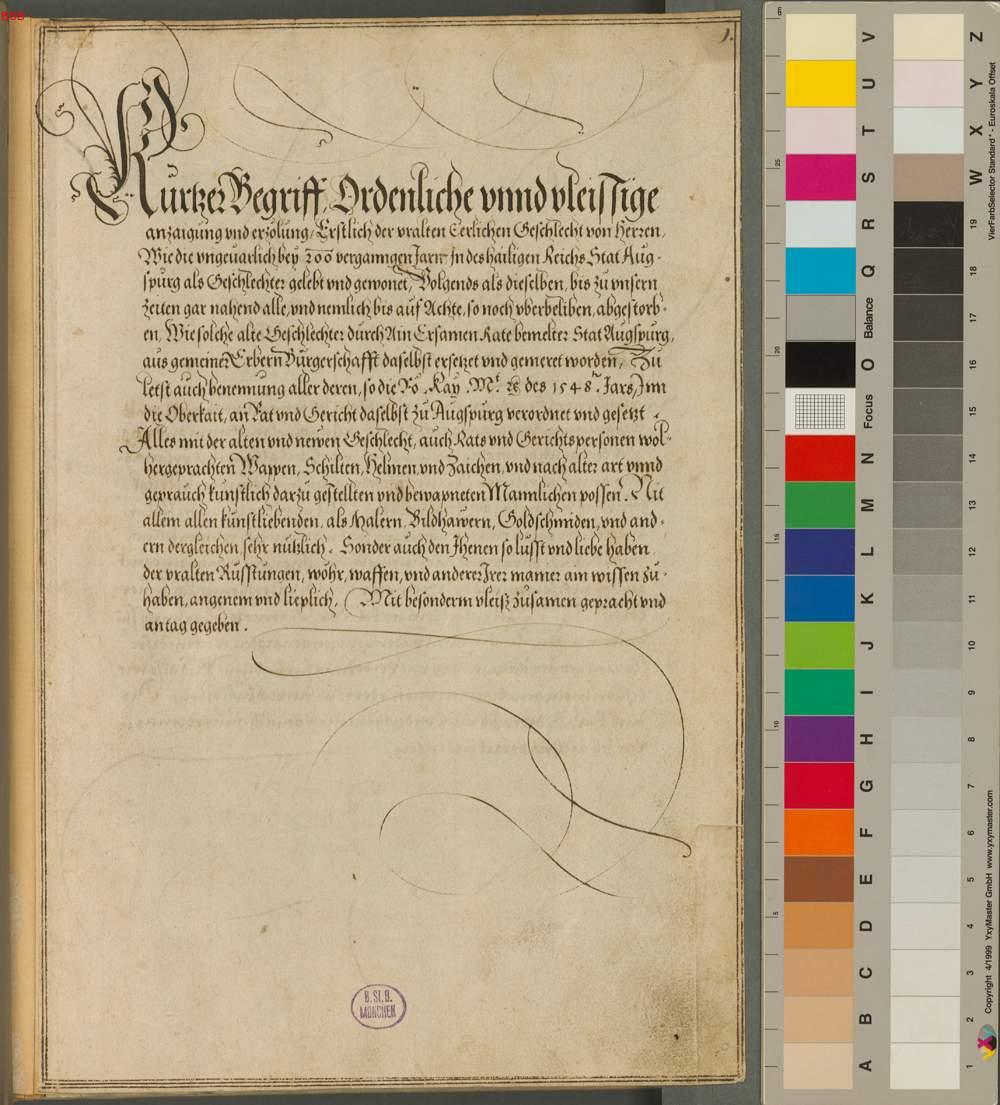 1.
Kurtzer Begriff, Ordenliche vnnd vleissige
anzaigung vnd erzölung, Erstlich der vralten Eerlichen Geschlecht von Herren,
Wie die vngeuarlich bey 200 verganngen Jarn Jn des hailigen Reichs Stat Aug-
spurg als Geschlechter gelebt vnd gewonet, Volgends als dieselben, bis zu vnsern
Zeiten gar nahend alle, vnd nemlich bis auf Achte, so noch vberbeliben, abgestorb-
en, Wie solche alte Geschlechter durch Ain Ersamen Rate bemelter Stat Augspurg,
aus gemeiner Erbern Burgerschafft daselbst ersetzt vnd gemeret worden, Zu
letst auch benennung aller deren, so die Rö. Kay. Mt. des 1548. Jars, Jnn
die Oberkait, an Rat vnd Gericht daselbst zu Augspurg verordnet vnd gesetzt.
Alles mit der alten vnd newen Geschlecht, auch Rats vnd Gerichts personen wol-
hergeprachten Wapen, Schilten, Helmen, vnd Zaichen, vnd nach alter art vnnd
geprauch kunstlich darzu gestellten vnd bewapneten Mannlichen possen. Mit
allem allen kunstliebenden, als Malern, Bildhawern, Goldschmiden, vnd and-
ern dergleichen, sehr nützlich. Sonder auch den Jhenen so lusst vnd liebe haben,
der vralten Rüsstungen, wöhr, waffen, vnd anderer Jrer manier ain wissen zu-
haben, angenem vnd lieplich. Mit besonderm vleiß zusamen gepracht vnd
an tag gegeben.
B.St.B.
MÜNCHEN
BSB
V U T S R Q Balance O Focus N M L K J I H G F E D C B A
Z Y X W 19 18 17 16 15 14 13 12 11 10 9 8 7 6 5 4 3 2 1
25
20
15
10
5
VierFarbSelector Standard* - Euroskala Offset
Copyright 4/1999 YxyMaster GmbH www.yxymaster.com